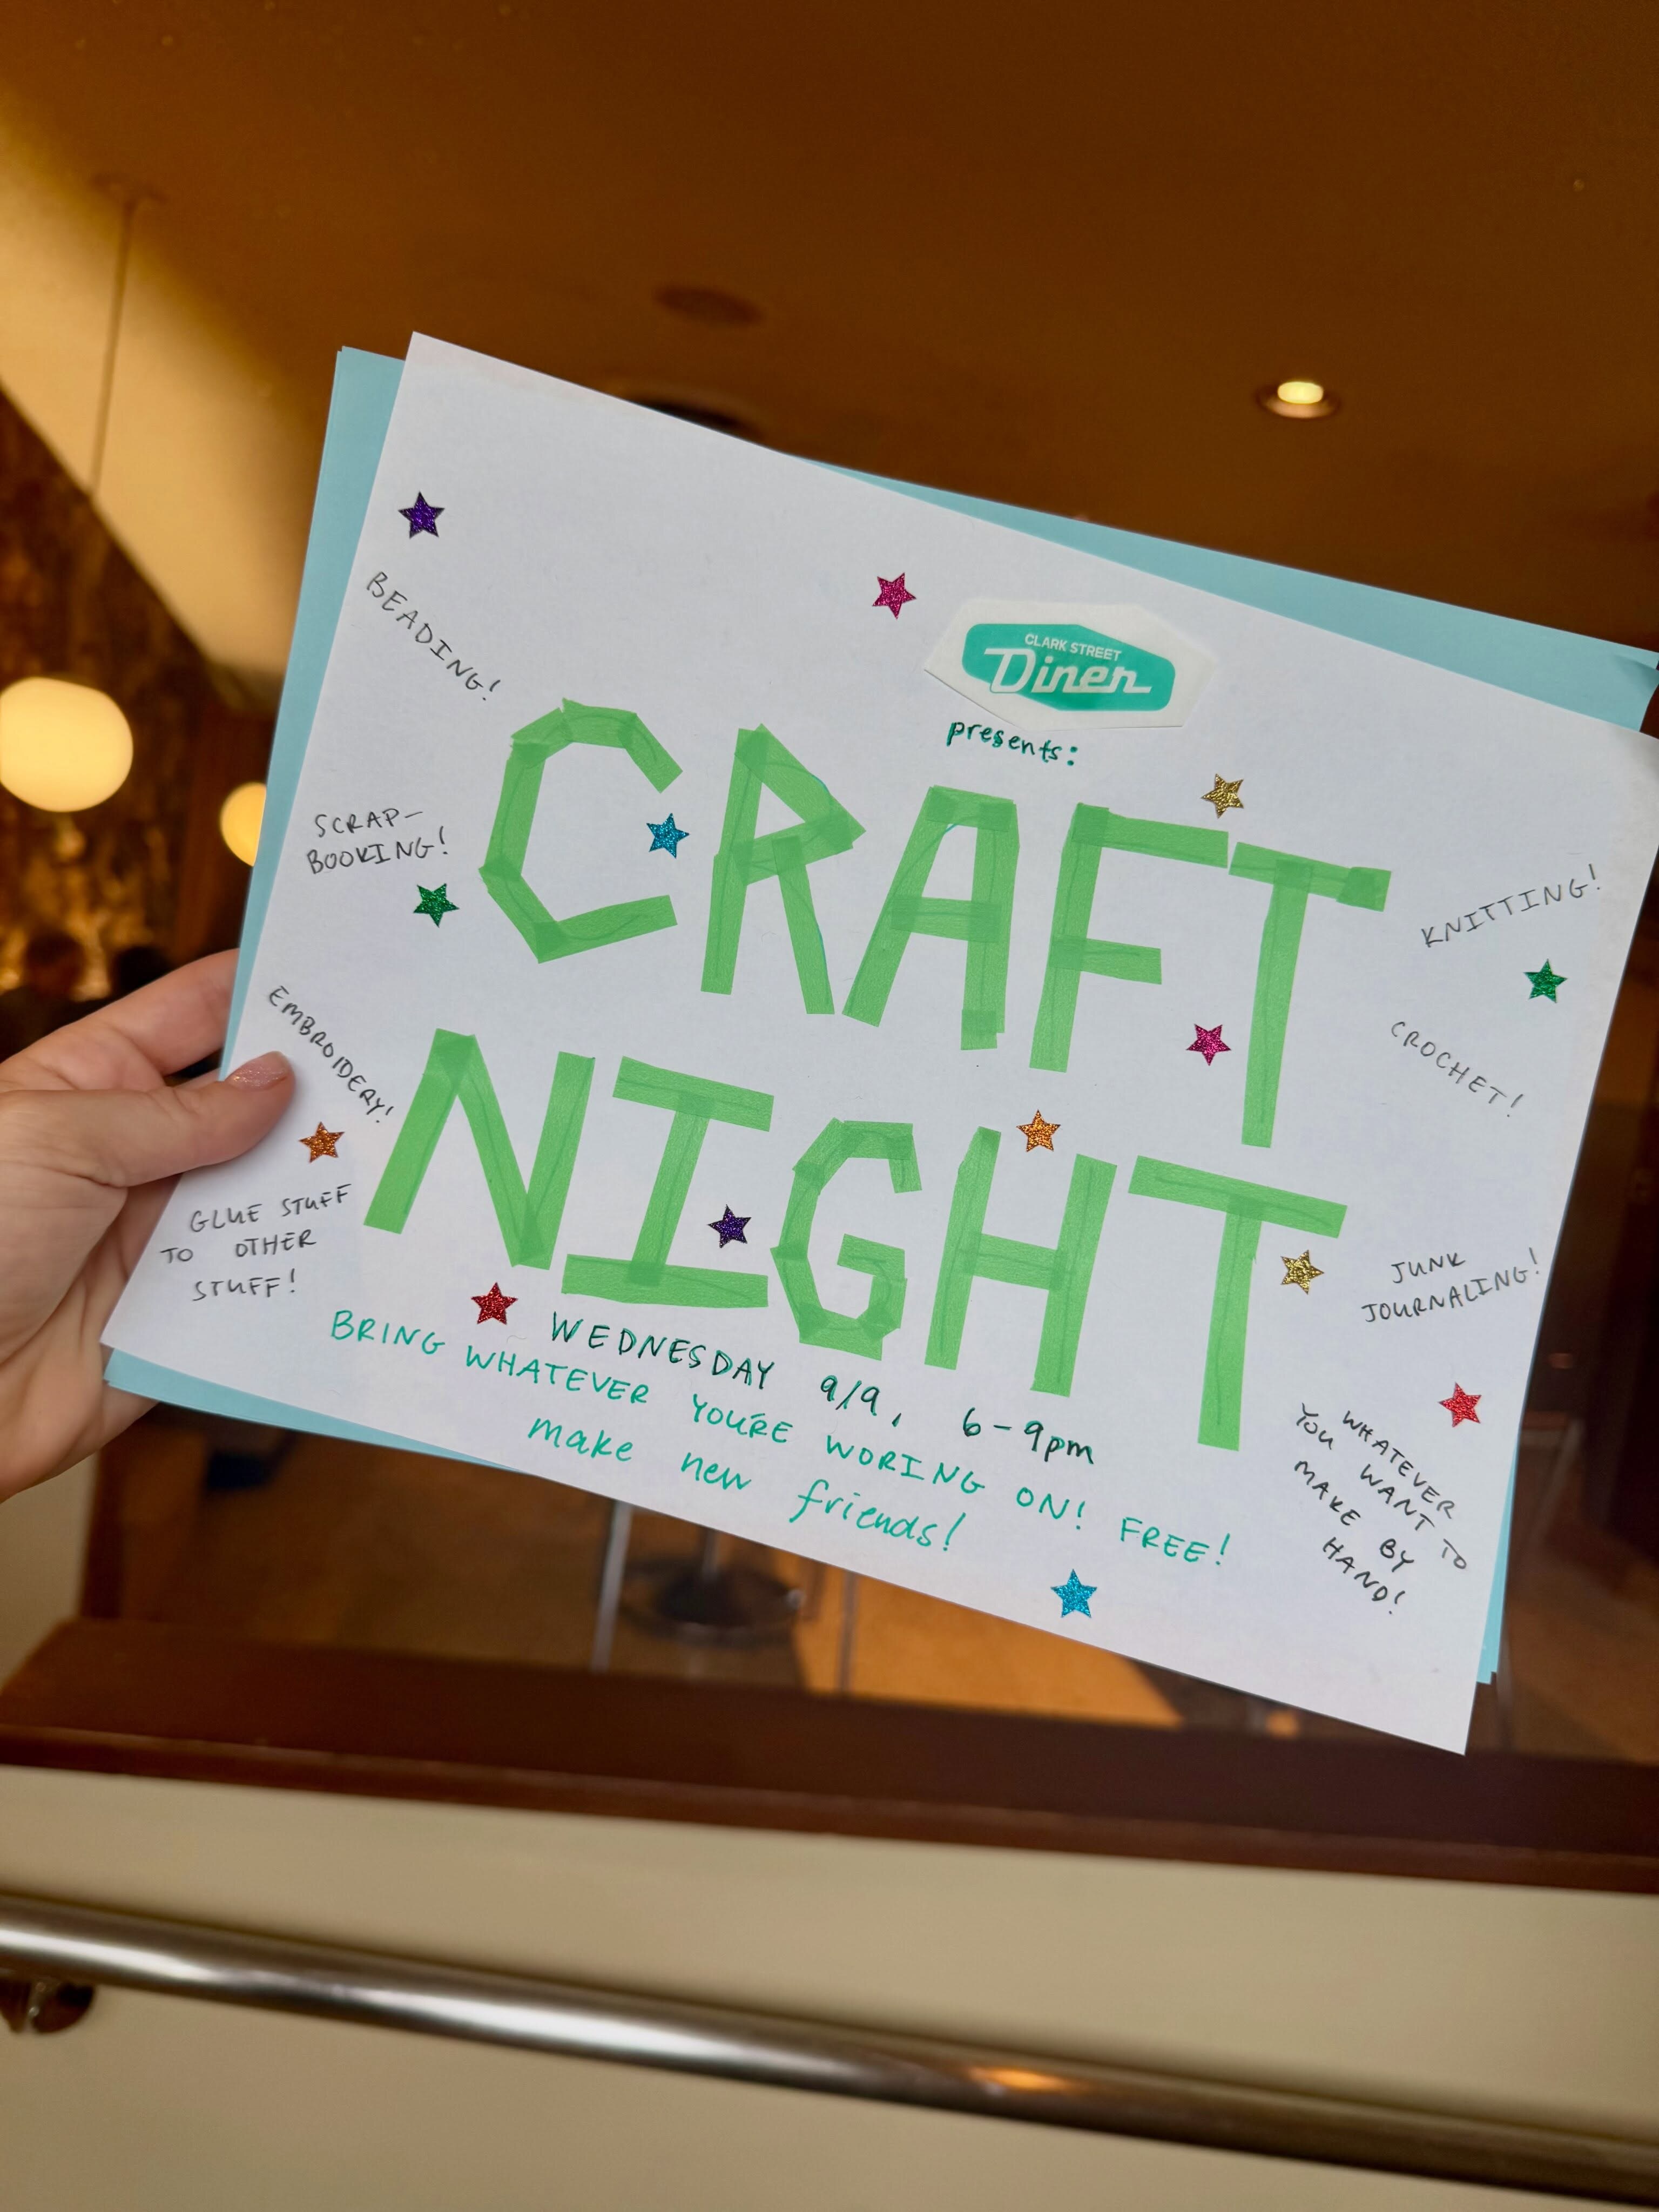 CLARK STREET
Diner
presents:
CRAFT
NIGHT
WEDNESDAY 9/9, 6-9pm
BRING WHATEVER YOU'RE WORING ON! FREE!
make new friends!
BEADING!
SCRAP-
BOOKING!
EMBROIDERY!
GLUE STUFF
TO OTHER
STUFF!
KNITTING!
CROCHET!
JUNK
JOURNALING!
WHATEVER
YOU WANT TO
MAKE BY
HAND!